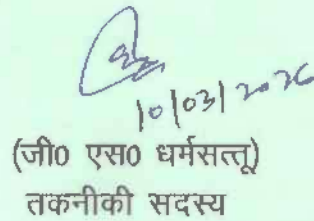 10/03/2026
(जी0 एस0 धर्मसत्तू)
तकनीकी सदस्य